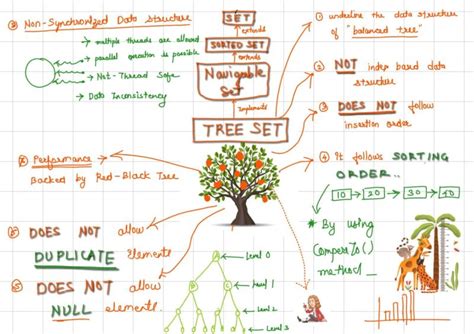 SET
extends
SORTED SET
extends
Navigable
Set
Implements
TREE SET
⑧ Non-Synchronized Data Structure
→ multiple threads are allowed
→ parallel execution is possible
→ Not-Thread Safe
→ Data Inconsistency
① underline the data structure
of "balanced tree"
② NOT index based data
structure
③ DOES NOT follow
insertion order
④ It follows SORTING
ORDER..
10 → 20 → 30 →
* By using
CompareTo()
method
Performance
Backed by Red-Black Tree
DOES NOT allow
DUPLICATE elements
DOES NOT allow
NULL element.
Level 0
Level 1
Level 2
Level 3